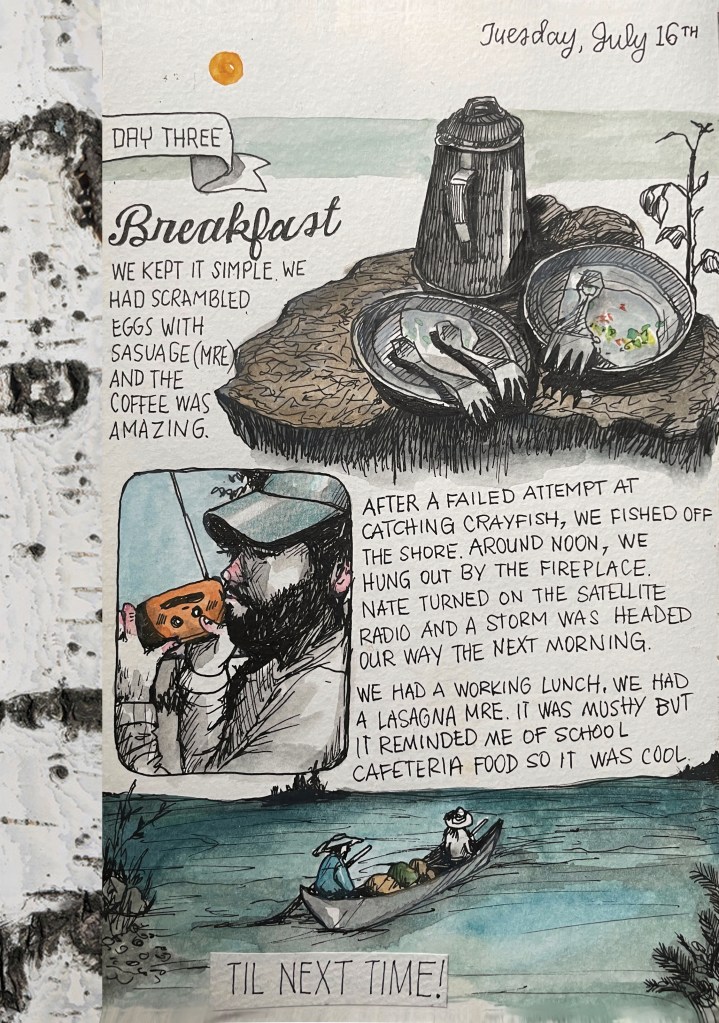 Tuesday, July 16TH
DAY THREE
Breakfast
WE KEPT IT SIMPLE. WE
HAD SCRAMBLED
EGGS WITH
SASUAGE (MRE)
AND THE
COFFEE WAS
AMAZING.
AFTER A FAILED ATTEMPT AT
CATCHING CRAYFISH, WE FISHED OFF
THE SHORE. AROUND NOON, WE
HUNG OUT BY THE FIREPLACE.
NATE TURNED ON THE SATELLITE
RADIO AND A STORM WAS HEADED
OUR WAY THE NEXT MORNING.
WE HAD A WORKING LUNCH. WE HAD
A LASAGNA MRE. IT WAS MUSHY BUT
IT REMINDED ME OF SCHOOL
CAFETERIA FOOD SO IT WAS COOL.
TIL NEXT TIME!